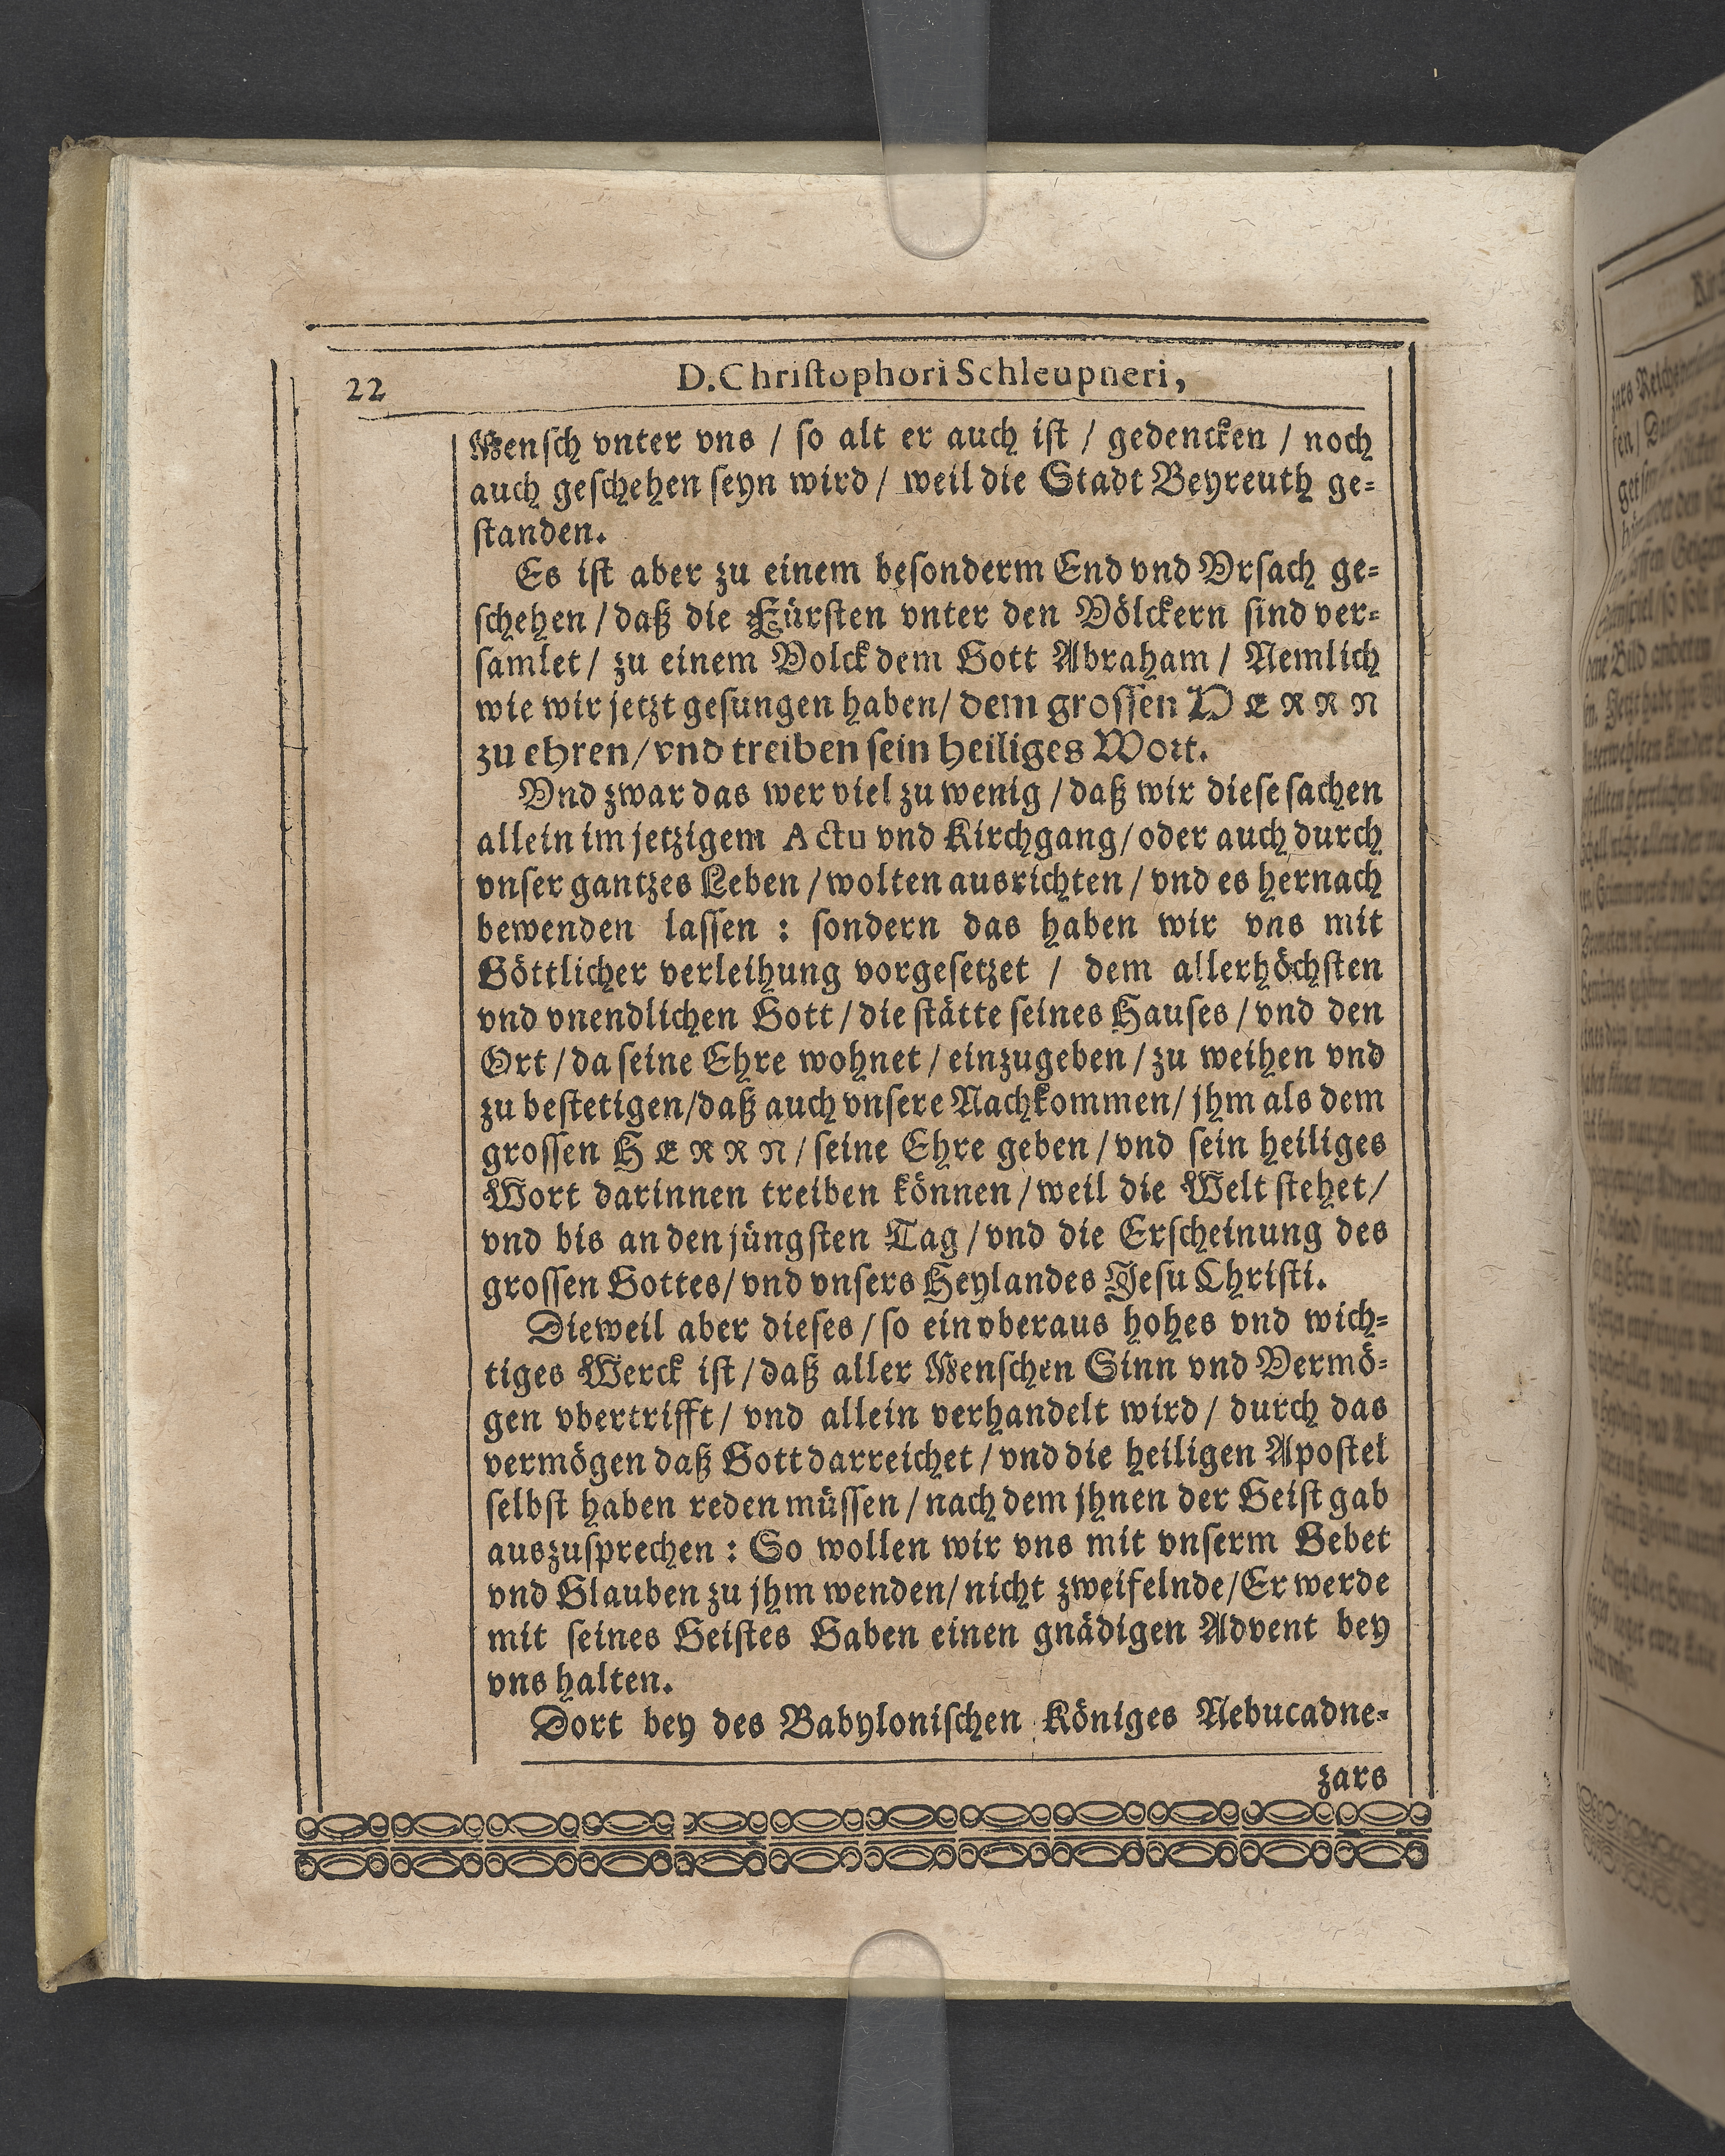 22
D. Christophori Schleupneri,
Mensch vnter vns / so alt er auch ist / gedencken / noch
auch geschehen seyn wird / weil die Stadt Beyreuth ge=
standen.
Es ist aber zu einem besonderm End vnd Vrsach ge=
schehen / daß die Fürsten vnter den Völckern sind ver=
samlet / zu einem Volck dem Gott Abraham / Nemlich
wie wir jetzt gesungen haben / dem grossen HERRN
zu ehren / vnd treiben sein heiliges Wort.
Vnd zwar das wer viel zu wenig / daß wir diese sachen
allein im jetzigem Actu vnd Kirchgang / oder auch durch
vnser gantzes Leben / wolten ausrichten / vnd es hernach
bewenden lassen : sondern das haben wir vns mit
Göttlicher verleihung vorgesetzet / dem allerhöchsten
vnd vnendlichen Gott / die stätte seines Hauses / vnd den
Ort / da seine Ehre wohnet / einzugeben / zu weihen vnd
zu bestetigen / daß auch vnsere Nachkommen / jhm als dem
grossen HERRN / seine Ehre geben / vnd sein heiliges
Wort darinnen treiben können / weil die Welt stehet /
vnd bis an den jüngsten Tag / vnd die Erscheinung des
grossen Gottes / vnd vnsers Heylandes Jesu Christi.
Dieweil aber dieses / so ein vberaus hohes vnd wich=
tiges Werck ist / daß aller Menschen Sinn vnd Vermö=
gen vbertrifft / vnd allein verhandelt wird / durch das
vermögen daß Gott darreichet / vnd die heiligen Apostel
selbst haben reden müssen / nach dem jhnen der Geist gab
auszusprechen : So wollen wir vns mit vnserm Gebet
vnd Glauben zu jhm wenden / nicht zweifelnde / Er werde
mit seines Geistes Gaben einen gnädigen Advent bey
vns halten.
Dort bey des Babylonischen Königes Nebucadne=
zars